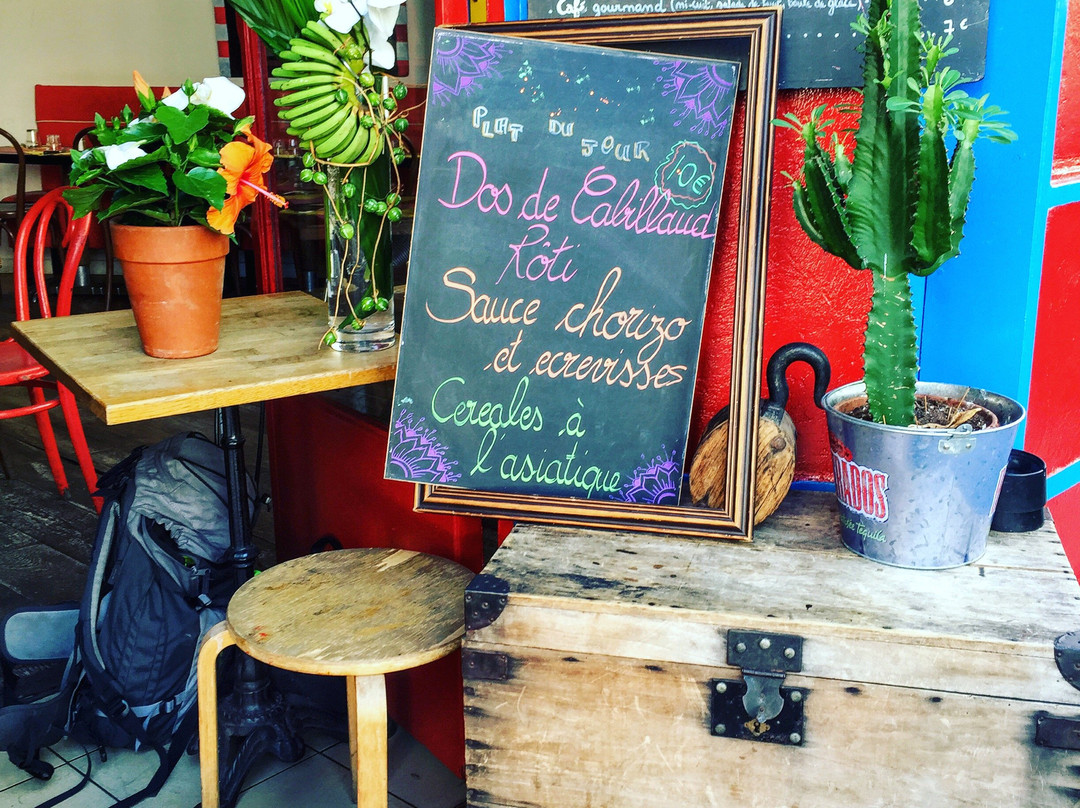 Café gourmand (mi-cuit, salade de fruit, boule de glace) 7€
PLAT DU JOUR
10€
Dos de Cabillaud
Rôti
Sauce chorizo
et ecrevisses
Cereales à
l'asiatique